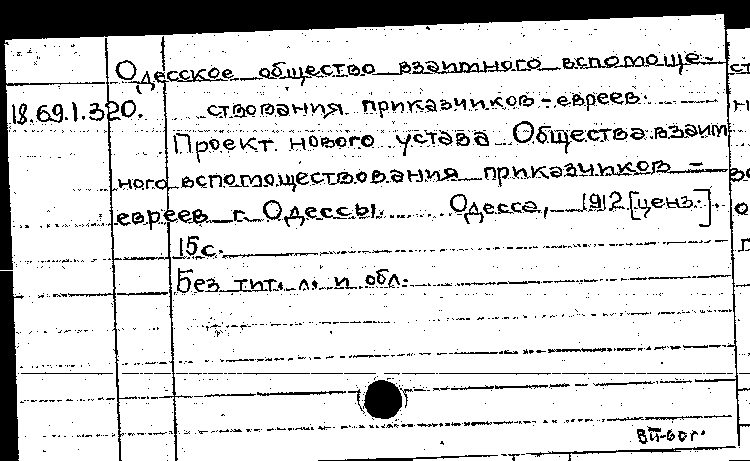 Одесское общество взаимного вспомоще-
18.69.1.320. ствования приказчиков-евреев.
Проект нового устава Общества взаим
ного вспомоществования приказчиков -
евреев г. Одессы. Одесса, 1912 [ценз.].
15 с.
Без тит. л. и обл.